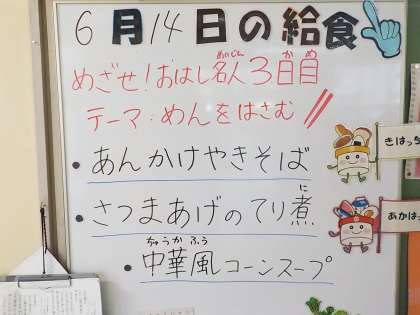 6月14日の給食
めざせ！おはし名人3日目
テーマ：めんをはさむ
・あんかけやきそば
・さつまあげのてり煮
・中華風コーンスープ
きはっち
あかはっ